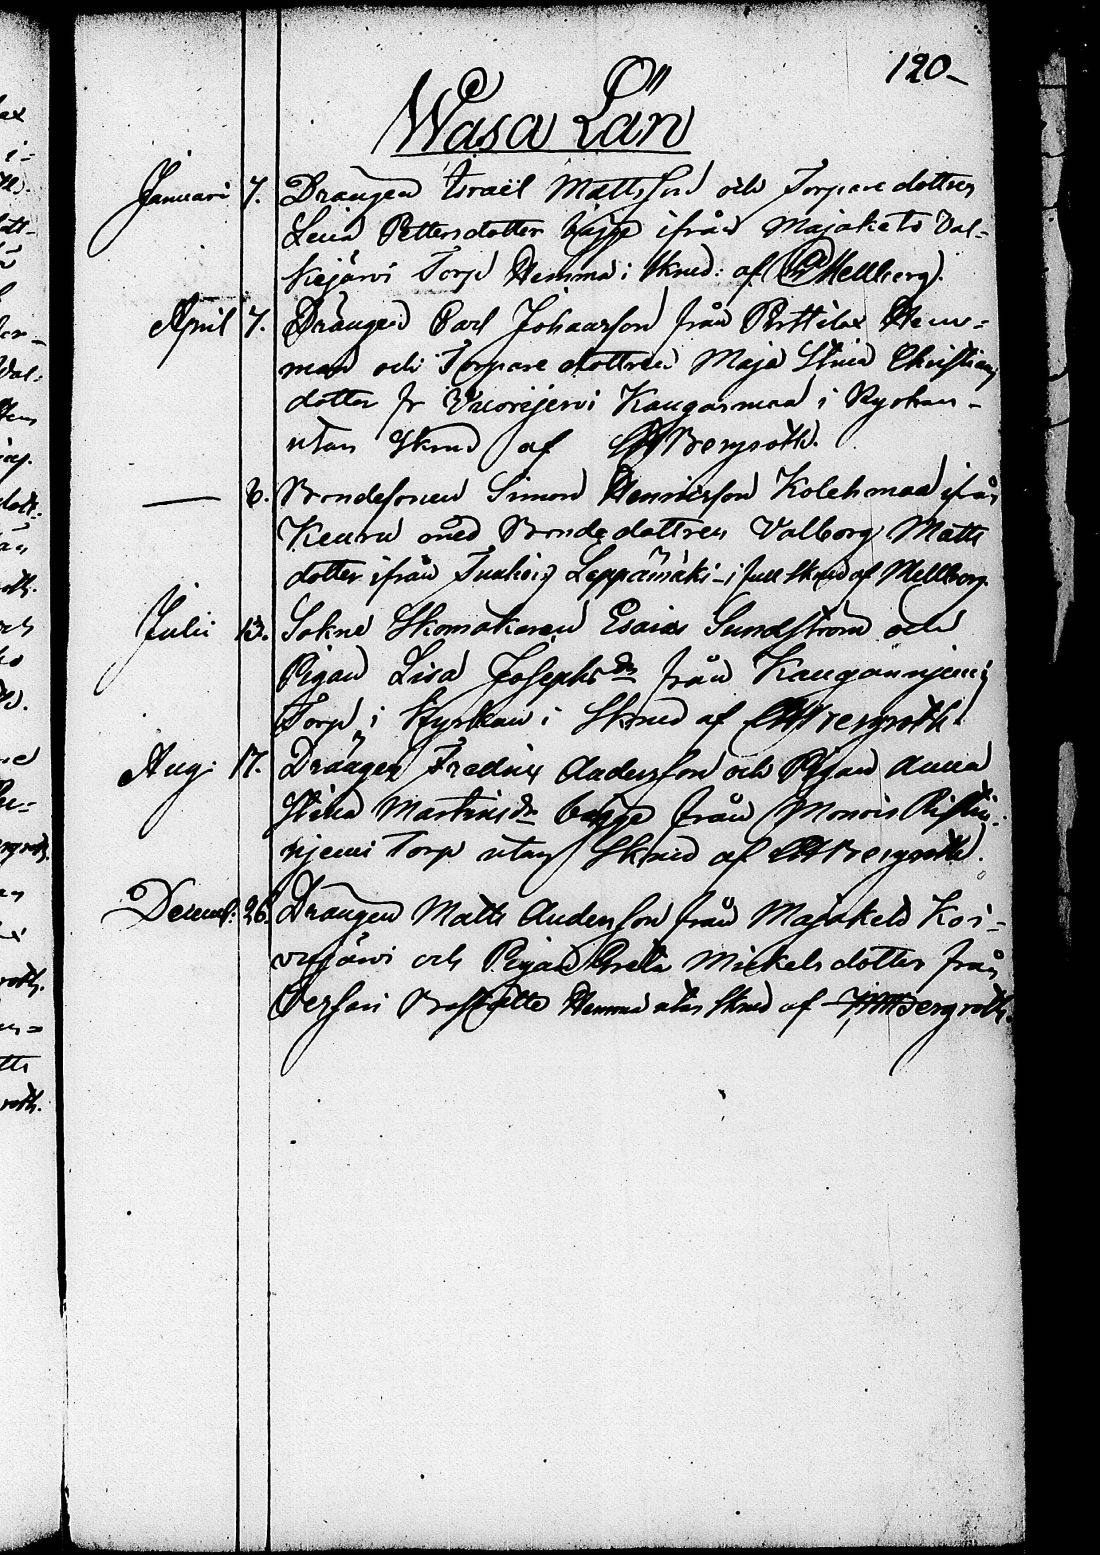 120
Wasa Län
Januari 7. Drängen Israël Mattsson och Torpare dottren
Lena Pettersdotter bägge ifrån Majaketo Val-
kejärvi Torp Hemma i skrud: af Mellberg).
April 7. Drängen Carl Johansson från Perttilä Hem-
man och Torpare dottren Maja Stina Christians
dotter fr Vuorijervi Kangasmaa i Kyrkan
utan skrud af Bergroth.
— 6. Bondesonen Simon Henricsson Kolehmaa ifrån
Keuru med Bonde dottren Valborg Matts
dotter ifrån Leppämäki i full skrud af Mellberg.
Julii 13. Sokne Skomakaren Esaias Sundström och
Pigan Lisa Josephsdr från Kangasnjemi
Torp i Kyrkan i Skrud af Bergroth
Aug: 17. Drängen Fredric Andersson och Pigan Anna
Stina Martinsdr bägge från
njemi Torp utan Skrud af Bergroth.
Decemb: 26. Drängen Matts Andersson från Majaketo Koi-
vujärvi och Pigan Greta Mickelsdotter från
Hemma utan skrud af Bergroth.